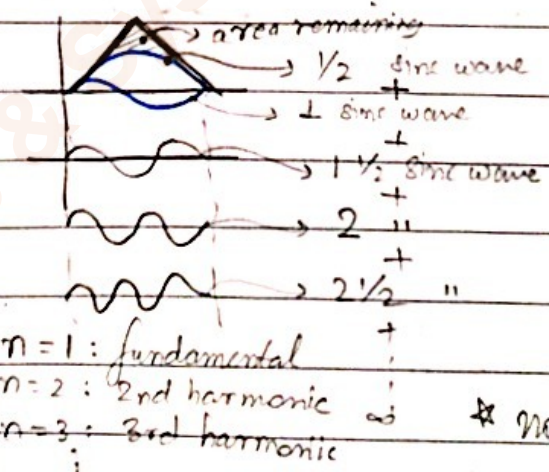 → area remaining
→ 1/2 sine wave
+
→ 1 sine wave
+
→ 1 1/2 sine wave
+
→ 2 "
+
→ 2 1/2 "
+
n = 1 : fundamental
n = 2 : 2nd harmonic
∞
n = 3 : 3rd harmonic